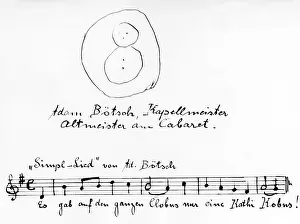 Adam Bötsch, Kapellmeister
Altmeister am Cabaret.
„Simpl-Lied" von Ad. Bötsch
Es gab auf den ganzen Globus nur eine Kathi Kobus!